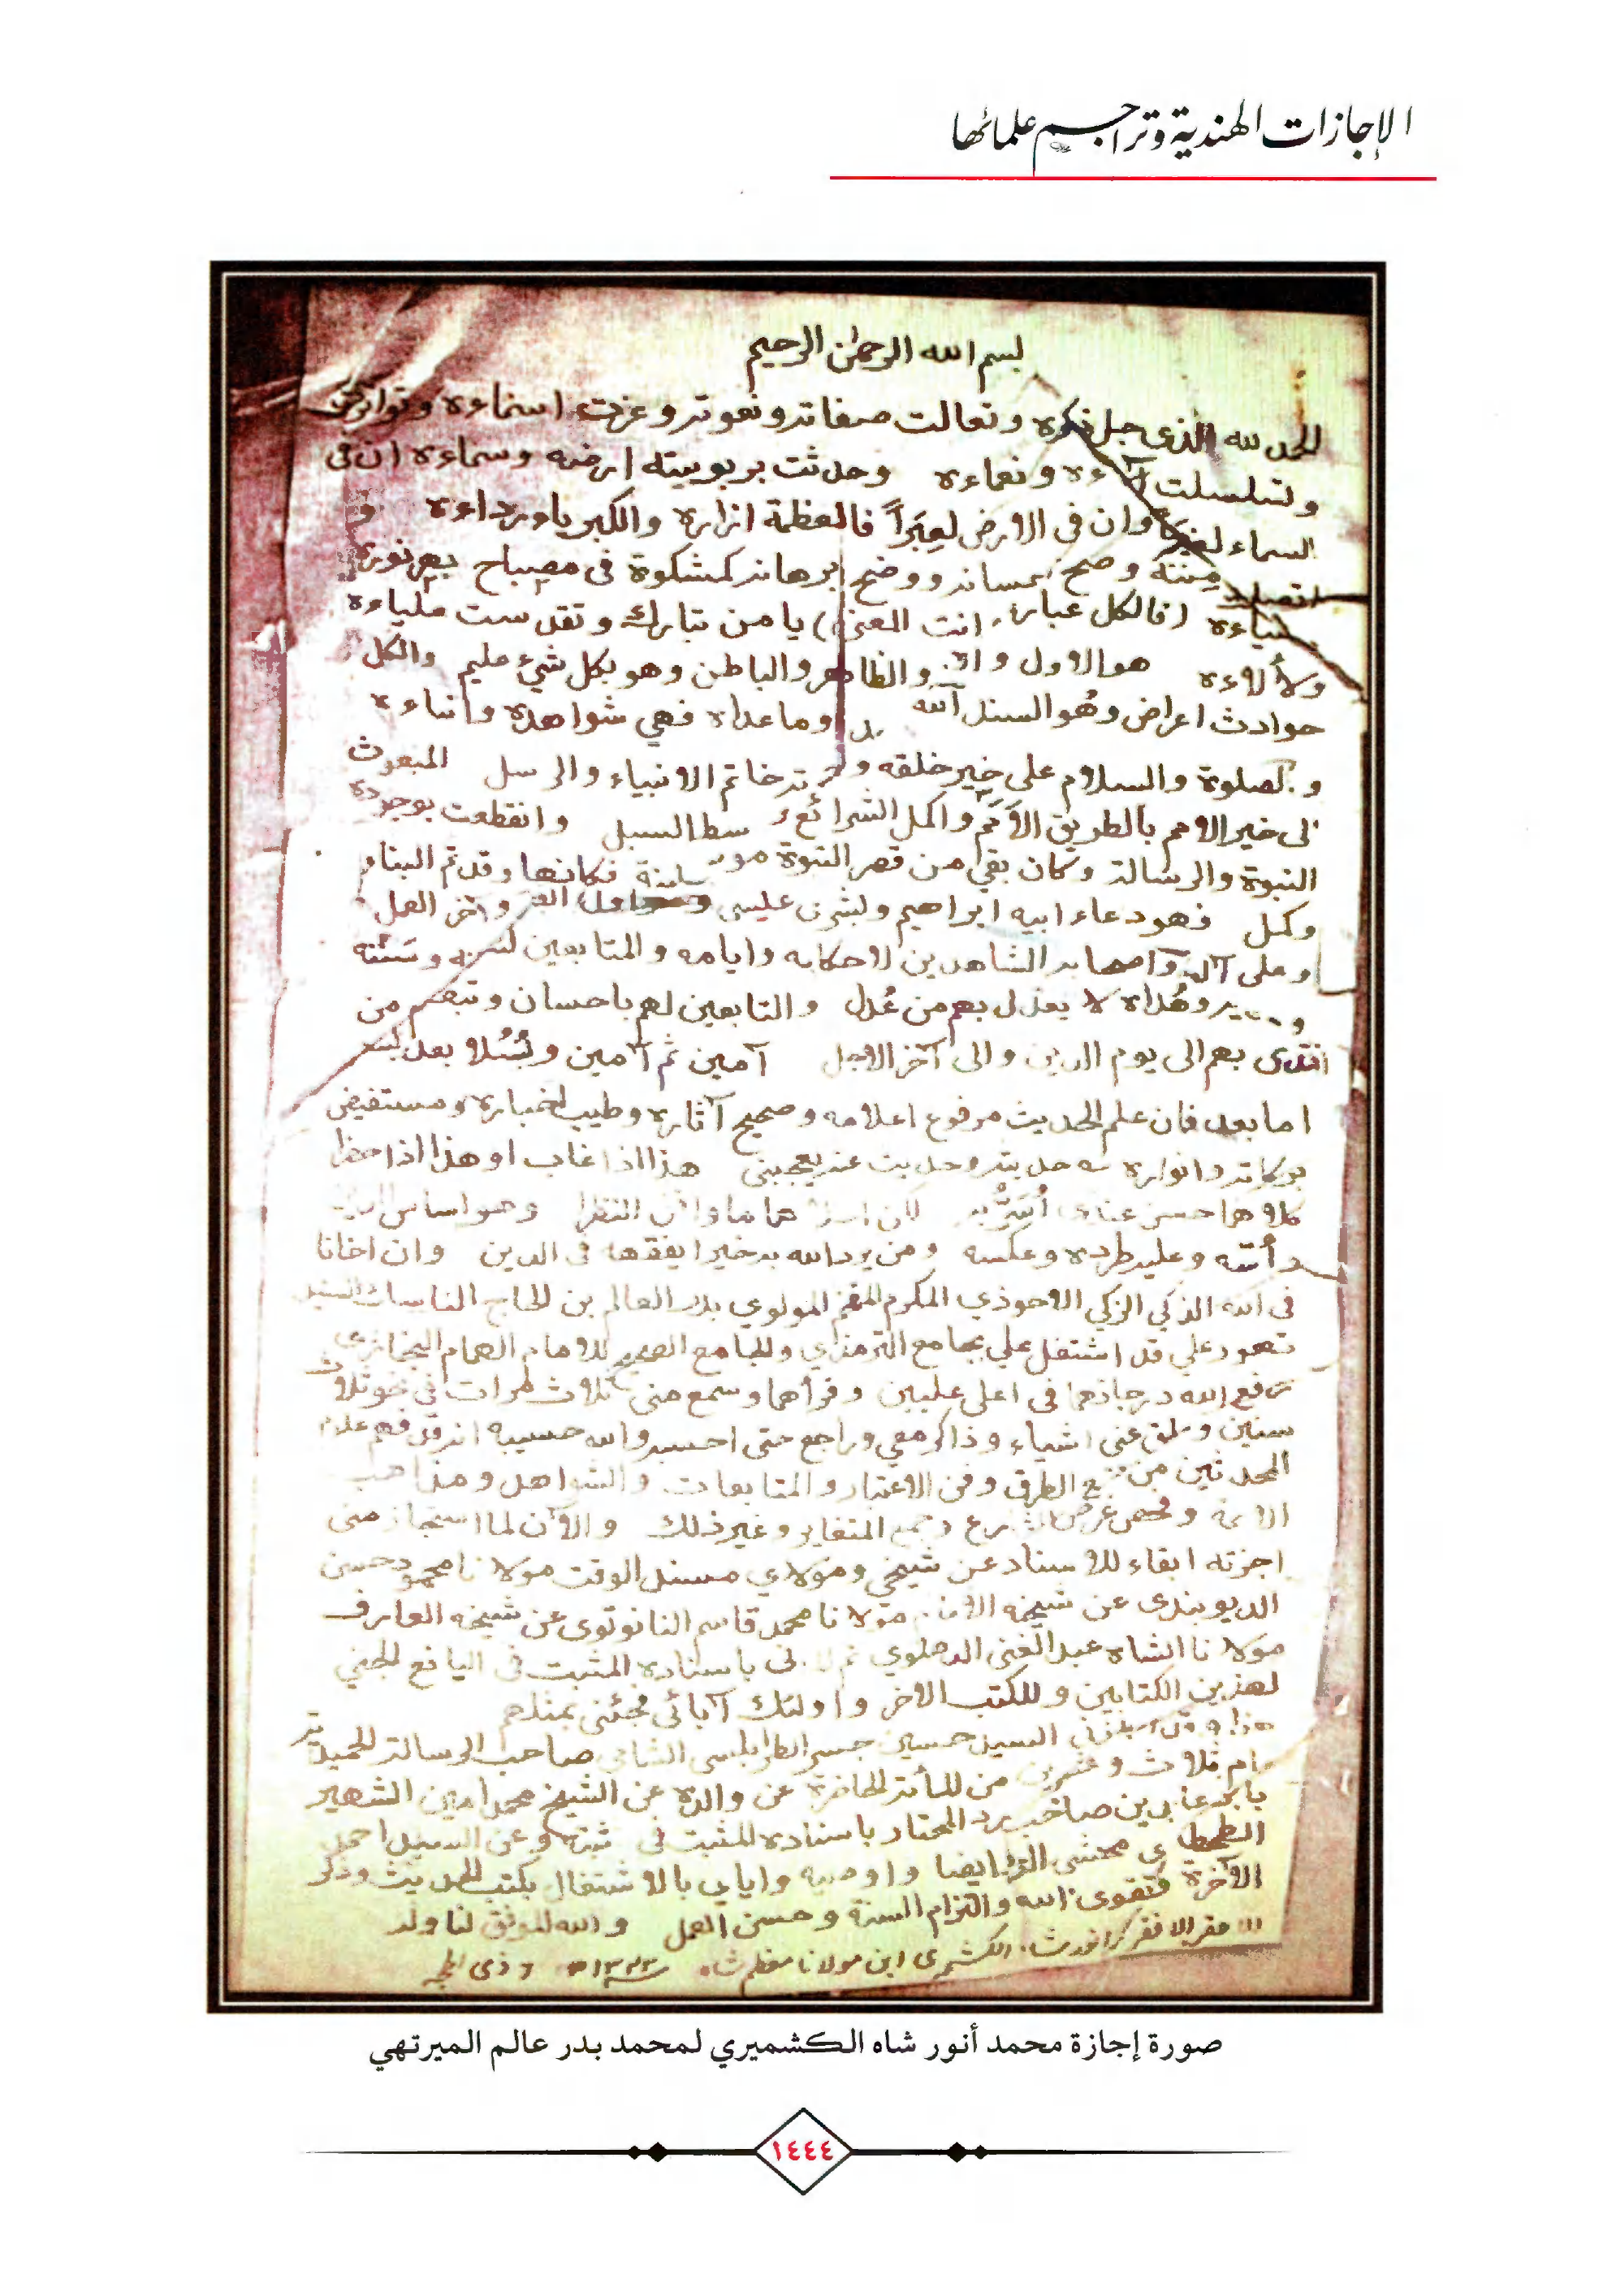 الإجازات الهندية وتراجم علمائها
بسم الله الرحمن الرحيم
الحمد لله الذي جل ذكره وتعالت صفاته ونعوته وعزت اسماءه وتواترت
وتسلسلت آلاءه ونعماءه وحدثت بربوبيته ارضه وسماءه ان في
السماء لخبرًا وان في الارض لعِبَراً فالعظمة ازاره والكبرياء رداءه و
اتصلت مننه وصح احسانه ووضح برهانه كمشكوة في مصباح بهر نوره
ضياءه (فالكل عبارة انت المعنى) يا من تبارك وتقدست علياءه
ولألاءه هو الاول و والظاهر والباطن وهو بكل شيء عليم والكل
حوادث اعراض وهُو السند الله وما عداه فهي شواهده وانباءه
والصلوة والسلام على خير خلقه و خاتم الانبياء والرسل المبعوث
الى خير الامم بالطريق الاَمَم واكمل الشرائع سط السبل وانقطعت بوجوده
النبوة والرسالة وكان بقي من قصر النبوة موضع لبنة فكانها وقد تم البناء
وكمل فهو دعاء ابيه ابراهيم وبشرى عيسى واول واخر العمل
وعلى آله واصحابه الشاهدين لاحكامه وايامه والمتابعين لسننه وسَنَنه
و وهُداه لا يعدل بهم من عُدل والتابعين لهم باحسان وتبعهم من
اقتدى بهم الى يوم الدين والى آخر الاجل آمين ثم آمين وبُسُلا بعد بسل
اما بعد فان علم الحديث مرفوع اعلامه وصحيح آثاره وطيب اخباره ومستفيض
بركاته وانواره حديثه وحديث عنه يعجبني هذا اذا غاب او هذا اذا حضرا
كلاهما حسن عندي اُسَرُّ به لكن احلاهما ما وافق النظرا وهو اساس الدين
و وعليه طرده وعكسه ومن يرد الله به خيرا يفقهه في الدين وان اخانا
في الله الذكي الزكي الاحوذي المكرم المفخم المولوي بدر العالم بن الحاج الناسك السيد
تهور علي قد اشتغل علي بجامع الترمذي والجامع الصحيح للامام الهمام البخاري
رفع الله درجاتهما في اعلى عليين وقرأهما وسمع مني ثلاث مرات في نحو ثلاث
سنين وعلق عني اشياء وذاكر معي وراجع حتى احسبه والله حسيبه انه قد فهم علم
المحدثين من جمع الطرق وفن الاعتبار والمتابعات والشواهد ومذاهب
الائمة وفحص غرض الشارع وجمع المتغاير وغير ذلك والآن لما استجاز مني
اجزته ابقاء للاسناد عن شيخي ومولاي مسند الوقت مولانا محمود حسن
الديوبندي عن شيخه مولانا محمد قاسم النانوتوي عن شيخه العارف
مولانا الشاه عبد الغني الدهلوي ثم المدني باسناده المثبت في اليانع الجني
لهذين الكتابين وللكتب الاخر واولئك آبائي فجئني بمثلهم
هذا وقد اجازني السيد حسين جسر الطرابلسي الشامي صاحب الرسالة الحميدية
عام ثلاث وعشرين من المأته الحاضرة عن والده عن الشيخ محمد امين الشهير
بابن عابدين صاحب رد المحتار باسناده المثبت في ثبته وعن السيد احمد
الطحطاوي محشي الدر ايضا واوصيه واياي بالاشتغال بكتب الحديث وذكر
الآخرة وتقوى الله والتزام السنة وحسن العمل والله الموفق لنا وله
احقر الافقر محمد انور شاه الكشميري ابن مولانا معظم شاه ١٣٤٣ه ٦ ذى الحجه
صورة إجازة محمد أنور شاه الكشميري لمحمد بدر عالم الميرتهي
١٤٤٤